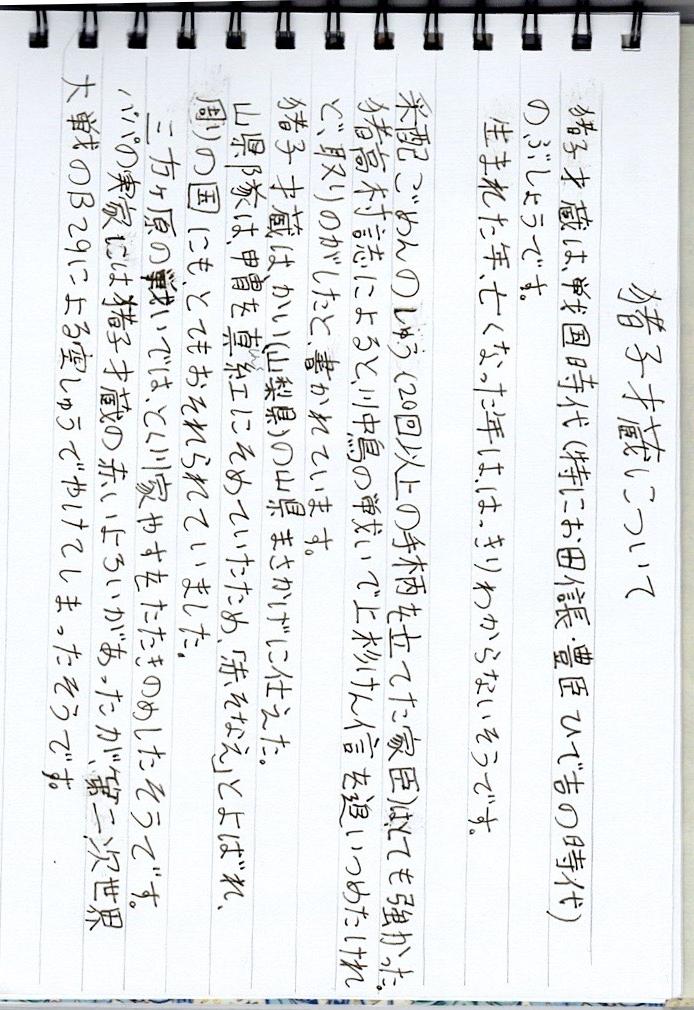 猪子才蔵について
猪子才蔵は、戦国時代(特にお田信長・豊臣ひで吉の時代)
のぶしょうです。
生まれた年、亡くなった年は、はっきりわからないそうです。
采配ごめんのしゅう(20回以上の手柄を立てた家臣)は、とても強かった。
猪高村誌によると、川中島の戦いで上杉けん信を追いつめたけれ
ど、取りのがしたと、書かれています。
猪子才蔵はかい(山梨県)の山県まさかげに仕えた。
山県隊は、甲冑を真紅にそめていたため、「赤そなえ」とよばれ、
周りの国にも、とてもおそれられていました。
三方ヶ原の戦いでは、とく川家やすをたたきのめしたそうです。
パパの実家には猪子才蔵の赤いよろいがあったが、第二次世界
大戦のB29による空しゅうでやけてしまったそうです。